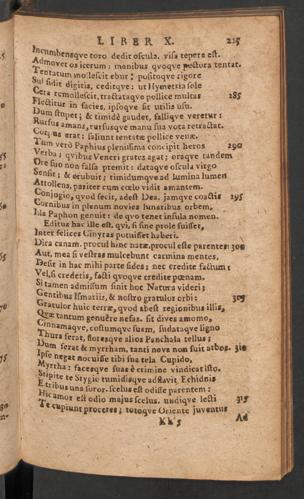 LIBER X. 225
Incumbensque toro dedit oscula. visa tepere est.
Admovet os iterum: manibus quoque pectora tentat.
Tentatum mollescit ebur: positoque rigore
Subsidit digitis, ceditque: ut Hymettia sole
Cera remollescit, tractataque pollice multas 285
Flectitur in facies, ipsoque fit utilis usu.
Dum stupet; & timidè gaudet, fallique veretur:
Rursus amans, rursusque manu sua vota retractat.
Corpus erat: saliunt tentatæ pollice venæ.
Tum verò Paphius plenissima concipit heros 290
Verba; quibus Veneri grates agat; oraque tandem
Ore suo non falsa premit: dataque oscula virgo
Sensit; & erubuit; timidumque ad lumina lumen
Attollens, pariter cum cœlo vidit amantem.
Conjugio, quod fecit, adest Dea. jamque coactis 295
Cornibus in plenum novies lunaribus orbem,
Illa Paphon genuit: de quo tenet insula nomen.
Editus hac ille est, qui, si sine prole fuisset,
Inter felices Cinyras potuisset haberi.
Dira canam. procul hinc natæ, procul este parentes 300
Aut, mea si vestras mulcebunt carmina mentes,
Desit in hac mihi parte fides; nec credite factum:
Vel, si credetis, facti quoque credite pœnam.
Si tamen admissum sinit hoc Natura videri;
Gentibus Ismariis, & nostro gratulor orbi: 305
Gratulor huic terræ, quod abest regionibus illis,
Quæ tantum genuêre nefas. sit dives amomo,
Cinnamaque, costumque suum, sudataque ligno
Thura ferat, floresque alios Panchaïa tellus;
Dum ferat & myrrham. tanti nova non fuit arbos. 310
Ipse negat nocuisse tibi sua tela Cupido,
Myrrha: facesque suas è crimine vindicat isto.
Stipite te Stygio tumidisque adflavit Echidnis
E tribus una soror. scelus est odisse parentem:
Hic amor est odio majus scelus. undique lecti 315
Te cupiunt proceres; totoque Oriente juventus
Kk 5 Ad